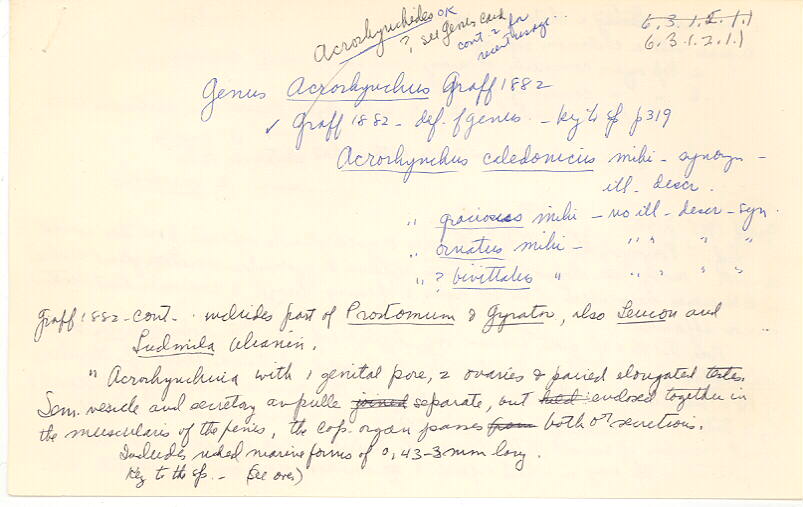 Acrorhynchides OK
? see Genus card
cont. 2 for
recent usage...
6.3.1.2.1.1
6.3.1.2.1.1
Genus Acrorhynchus Graff 1882
✓ Graff 1882 - def. of genus. - key to sp p319
Acrorhynchus caledonicus mihi - synonyn -
ill. descr.
" graciosus mihi - no ill - descr - syn.
" ornatus mihi - " " " "
" ? bivittatus " " " " "
Graff 1882 - cont. . includes part of Prostomum & Gyrator, also Leucon and
Ludmila Ulianin.
" Acrorhynchina with 1 genital pore, 2 ovaries & paired elongated testes.
Sem. vesicle and secretory ampulle joined separate, but enclosed together in
the muscularis of the penis, the cop. organ passes from both ♂ secretions.
Includes marine forms of 0,43-3 mm long.
Key to the sp. - (See over)